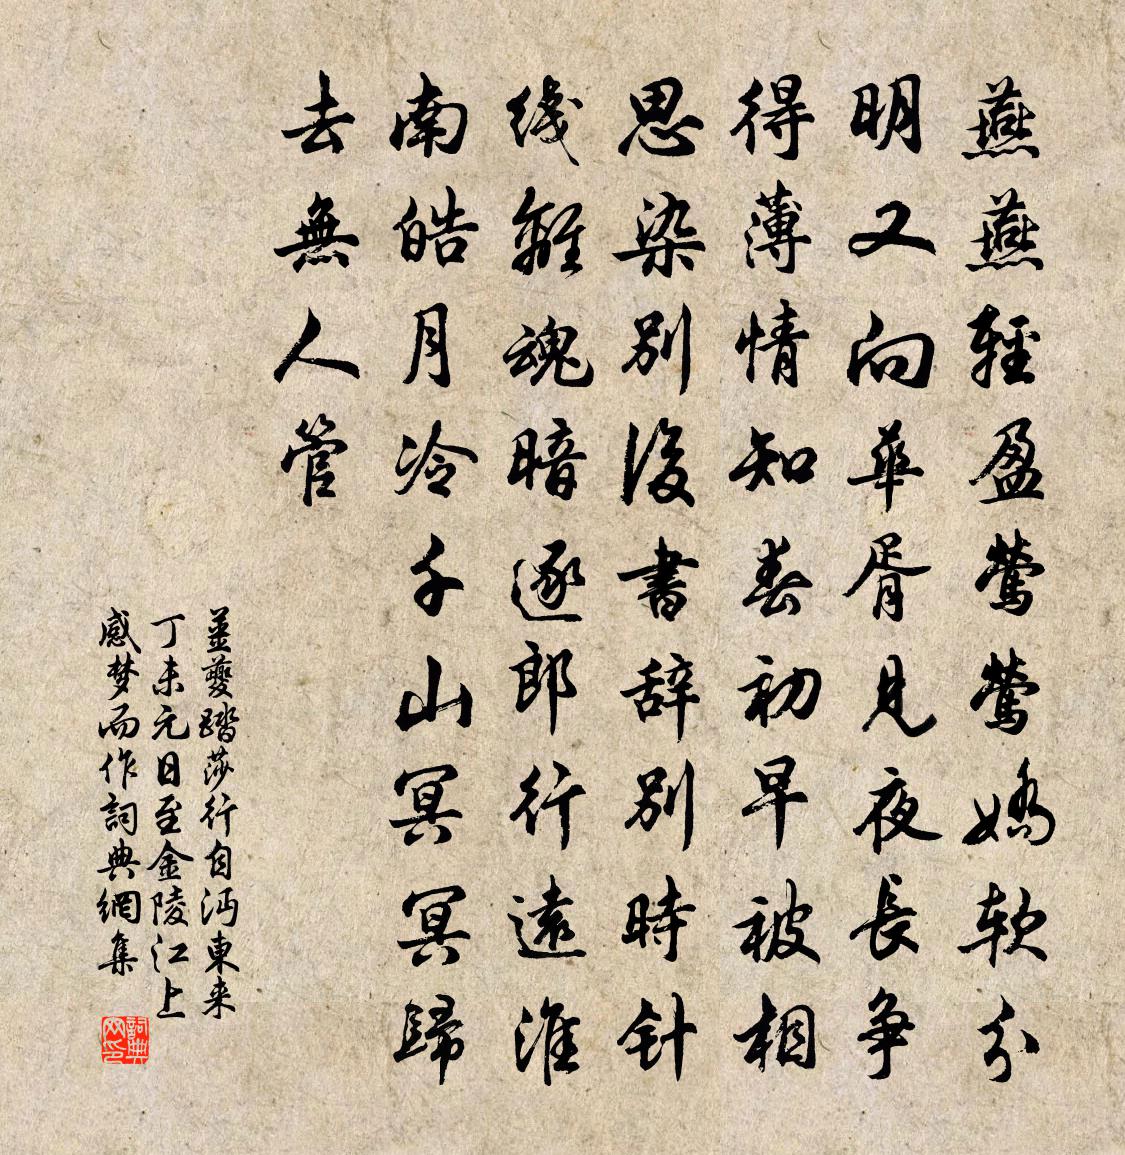 燕燕輕盈鶯鶯嬌软分
明又向華胥見夜長争
得薄情知春初早被相
思染别後書辞别時针
线離魂暗逐郎行遠淮
南皓月冷千山冥冥歸
去無人管
姜夔踏莎行自沔東来
丁未元日至金陵江上
感梦而作詞典網集
詞典
网印